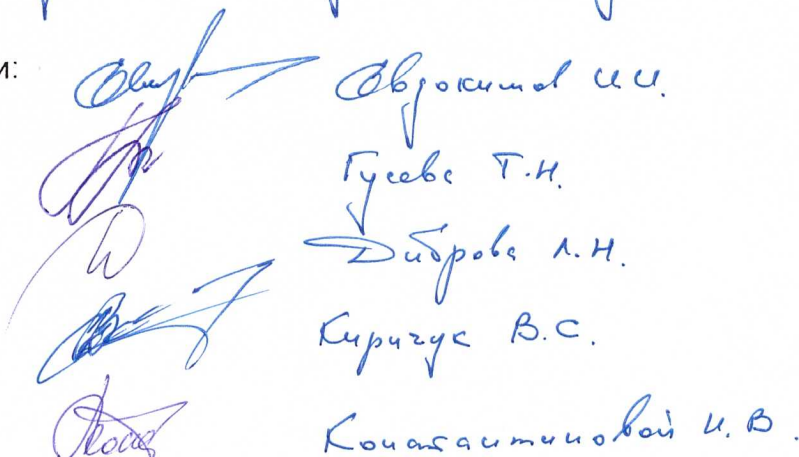 и:
Евдокимов И.И.
Гусева Т.Н.
Диброва Л.Н.
Киричук В.С.
Константиновой И.В.